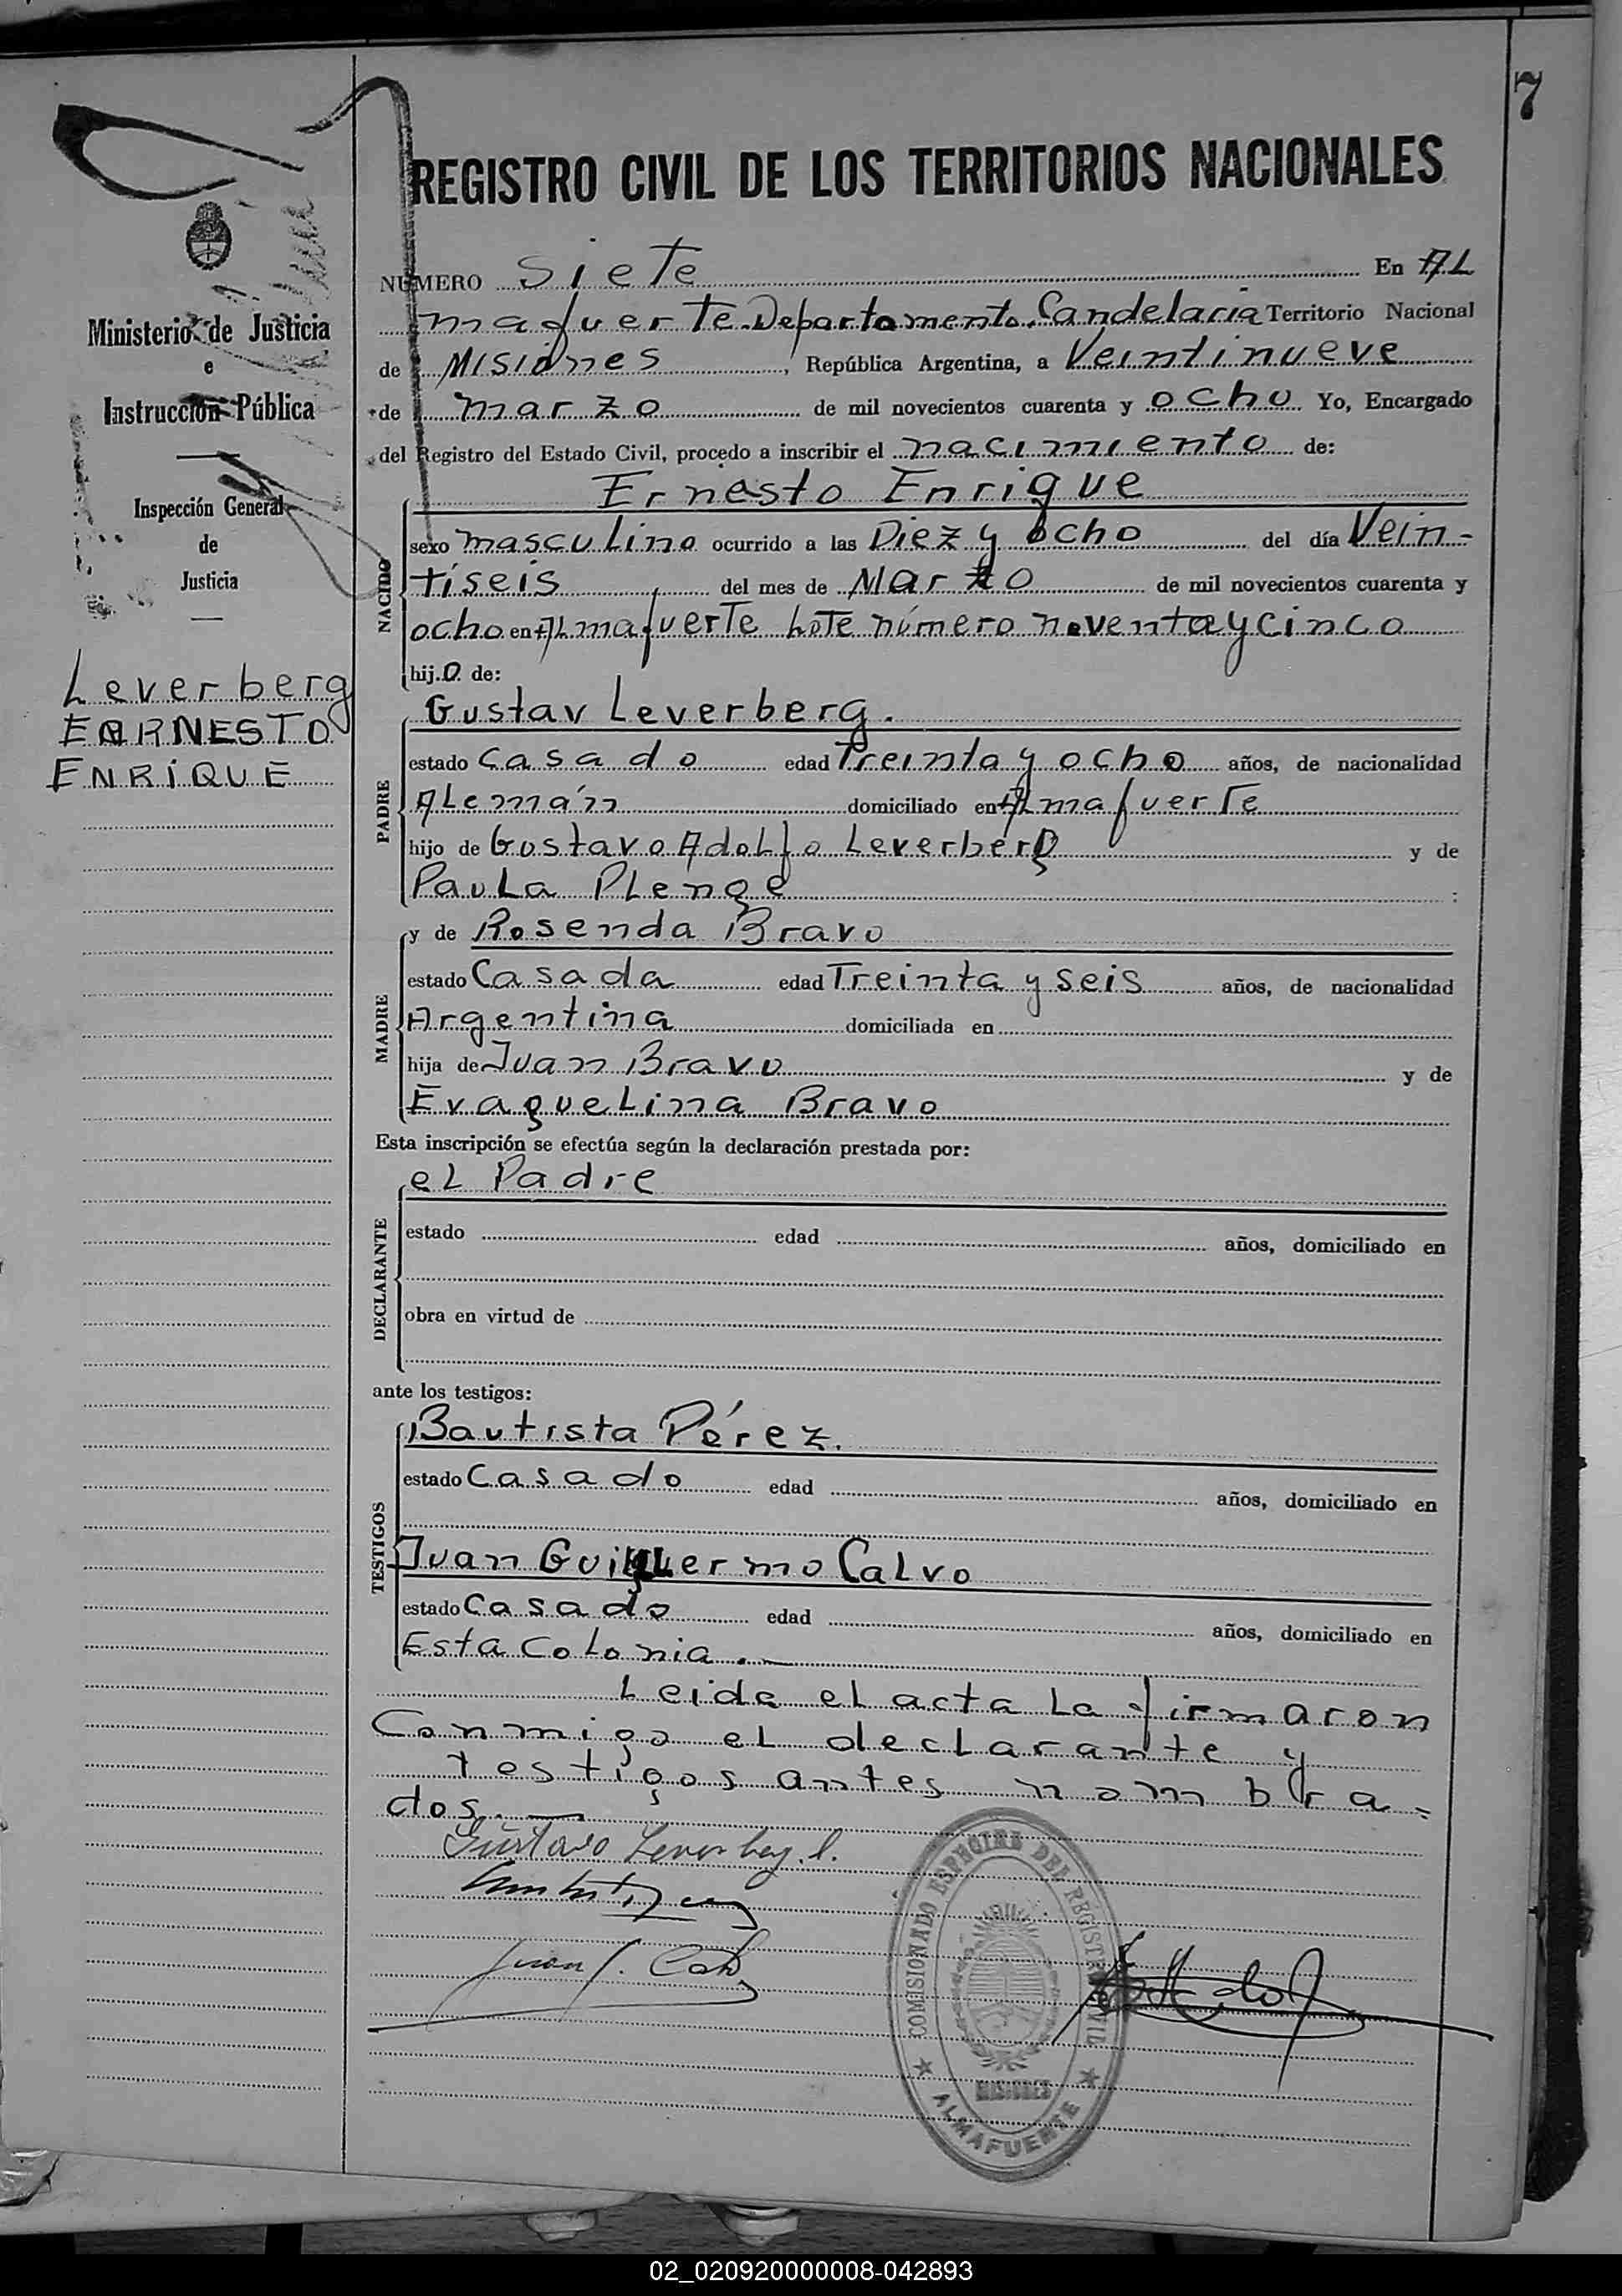 7
REGISTRO CIVIL DE LOS TERRITORIOS NACIONALES
NÚMERO Siete En AL
mafuerte Departamento Candelaria Territorio Nacional
de Misiones, República Argentina, a Veintinueve
de marzo de mil novecientos cuarenta y ocho Yo, Encargado
del Registro del Estado Civil, procedo a inscribir el nacimiento de:
Ministerio de Justicia
e
Instrucción Pública
Inspección General
de
Justicia
Leverberg
ERNESTO
ENRIQUE
NACIDO
Ernesto Enrique
sexo masculino ocurrido a las Diez y ocho del día Vein-
tíseis del mes de Marzo de mil novecientos cuarenta y
ocho en Almafuerte Lote número noventa y cinco
hijo de:
PADRE
Gustav Leverberg.
estado casado edad Treinta y ocho años, de nacionalidad
Alemán domiciliado en Almafuerte
hijo de Gustavo Adolfo Leverberg y de
Paula Plenge
MADRE
y de Rosenda Bravo
estado Casada edad Treinta y seis años, de nacionalidad
Argentina domiciliada en
hija de Juan Bravo y de
Evaquelina Bravo
Esta inscripción se efectúa según la declaración prestada por:
DECLARANTE
el Padre
estado edad años, domiciliado en
obra en virtud de
ante los testigos:
TESTIGOS
Bautista Pérez.
estado Casado edad años, domiciliado en
Juan Guillermo Calvo
estado Casado edad años, domiciliado en
Esta Colonia.
Leida el acta la firmaron
Conmigo el declarante y
testigos antes nombra-
dos.
Gustavo Leverberg
COMISIONADO ESPECIAL DEL REGISTRO CIVIL
MISIONES
ALMAFUERTE
02_020920000008-042893